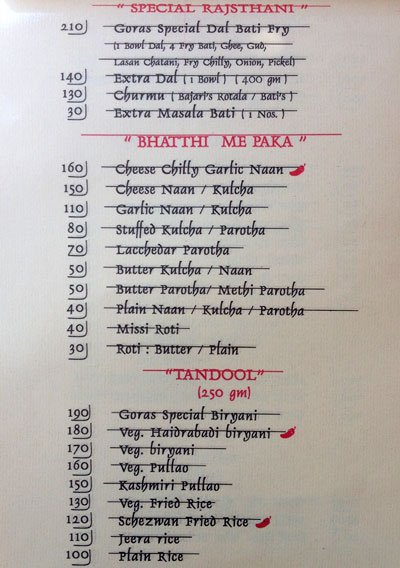 " SPECIAL RAJSTHANI "
210 Goras Special Dal Bati Fry
(1 Bowl Dal, 4 Fry Bati, Ghee, Gud,
Lasan Chatani, Fry Chilly, Onion, Pickel)
140 Extra Dal ( 1 Bowl ) ( 400 gm )
130 Churmu ( Bajari's Rotala / Bati's )
30 Extra Masala Bati ( 1 Nos. )
" BHATTHI ME PAKA "
160 Cheese Chilly Garlic Naan
150 Cheese Naan / Kulcha
110 Garlic Naan / Kulcha
80 Stuffed Kulcha / Parotha
70 Lacchedar Parotha
50 Butter Kulcha / Naan
50 Butter Parotha/ Methi Parotha
40 Plain Naan / Kulcha / Parotha
40 Missi Roti
30 Roti : Butter / Plain
"TANDOOL"
(250 gm)
190 Goras Special Biryani
180 Veg. Haidrabadi biryani
170 Veg. biryani
160 Veg. Pullao
150 Kashmiri Pullao
130 Veg. Fried Rice
120 Schezwan Fried Rice
110 Jeera rice
100 Plain Rice